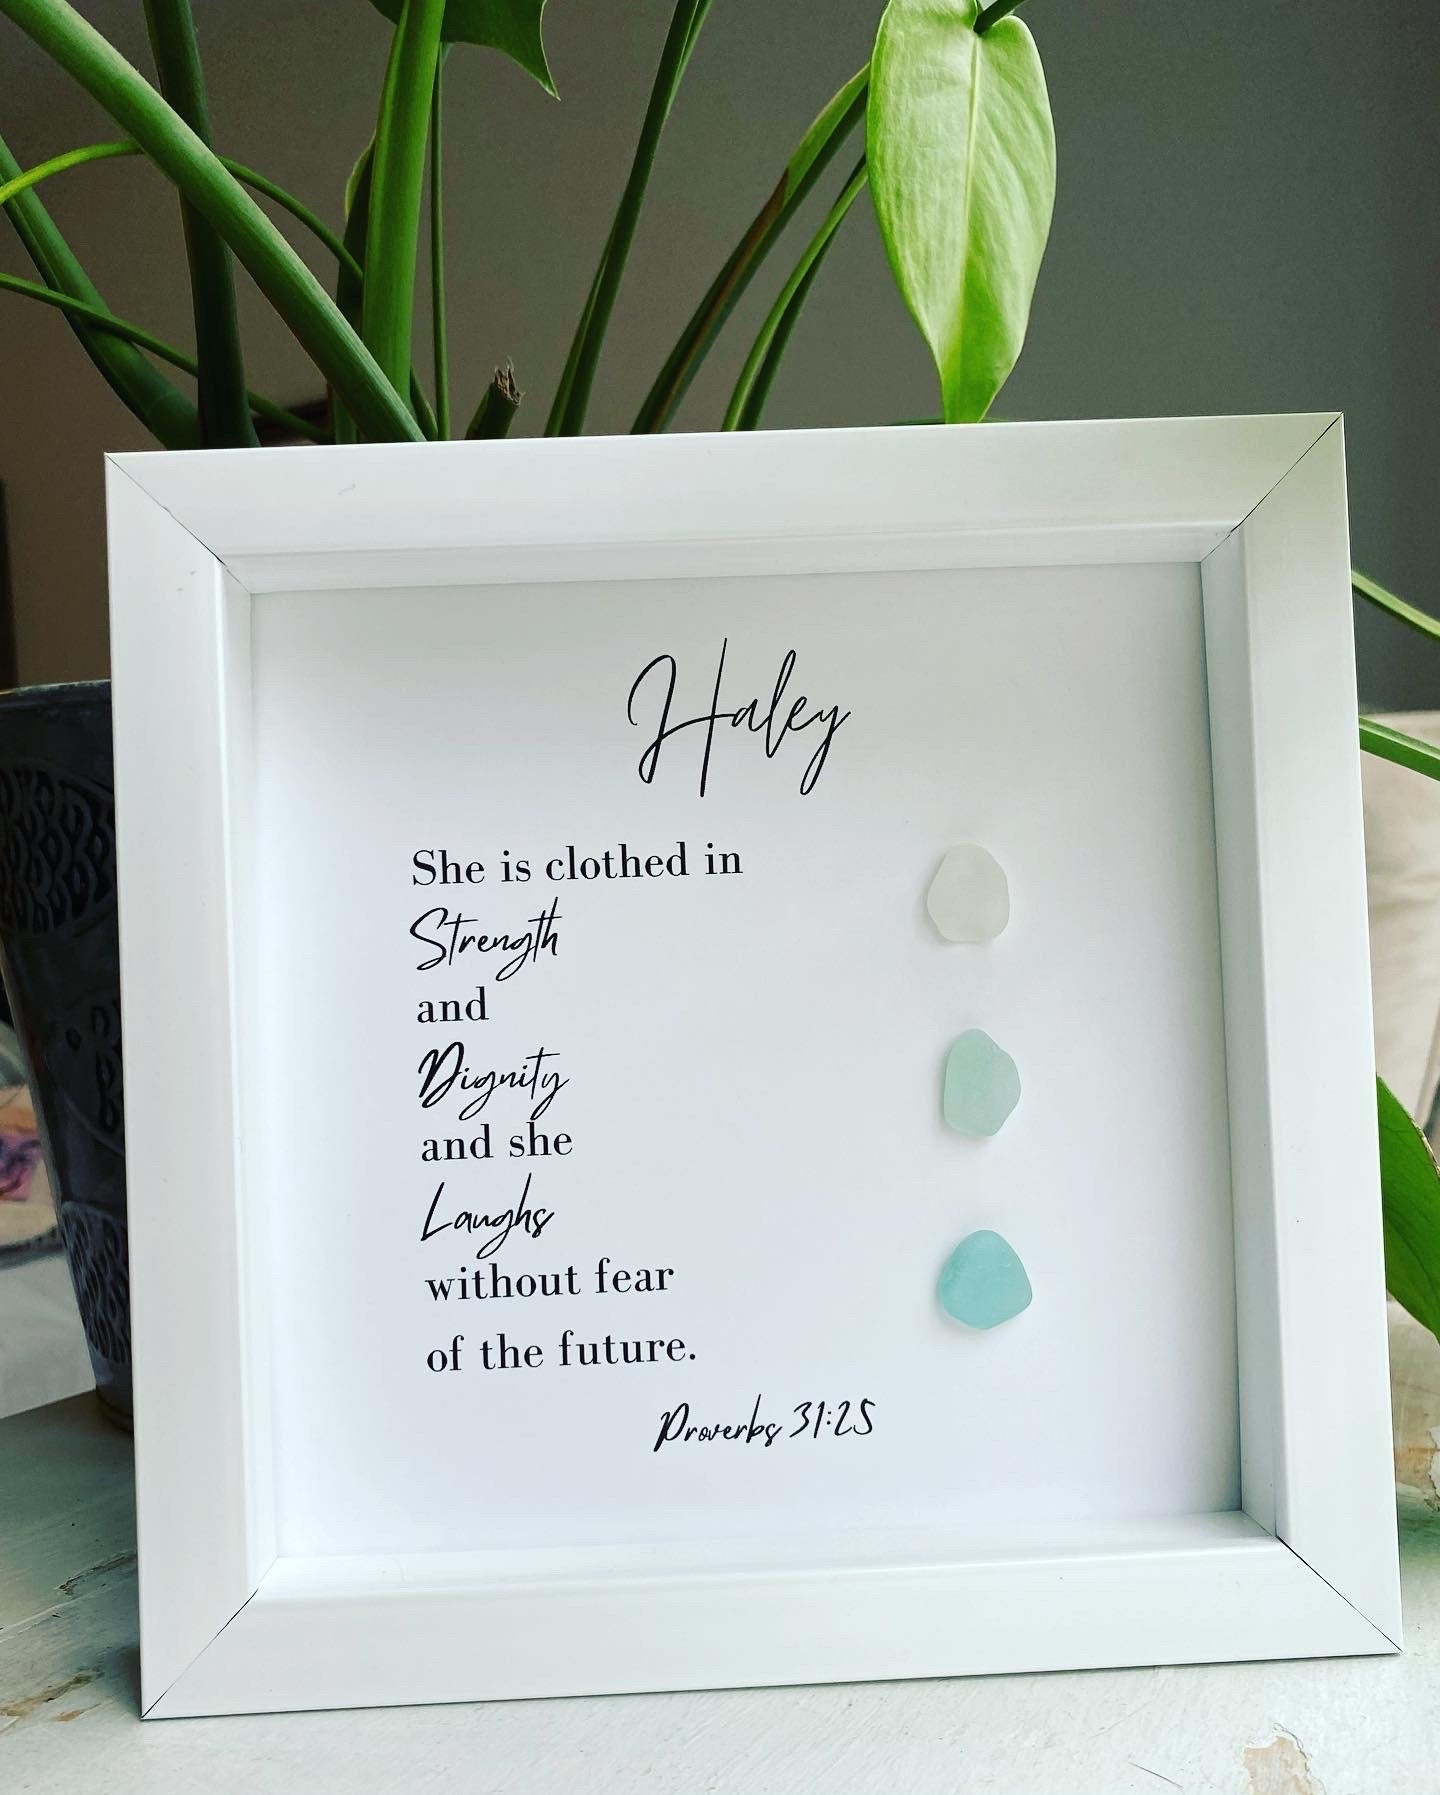 Haley
She is clothed in
Strength
and
Dignity
and she
Laughs
without fear
of the future.
Proverbs 31:25